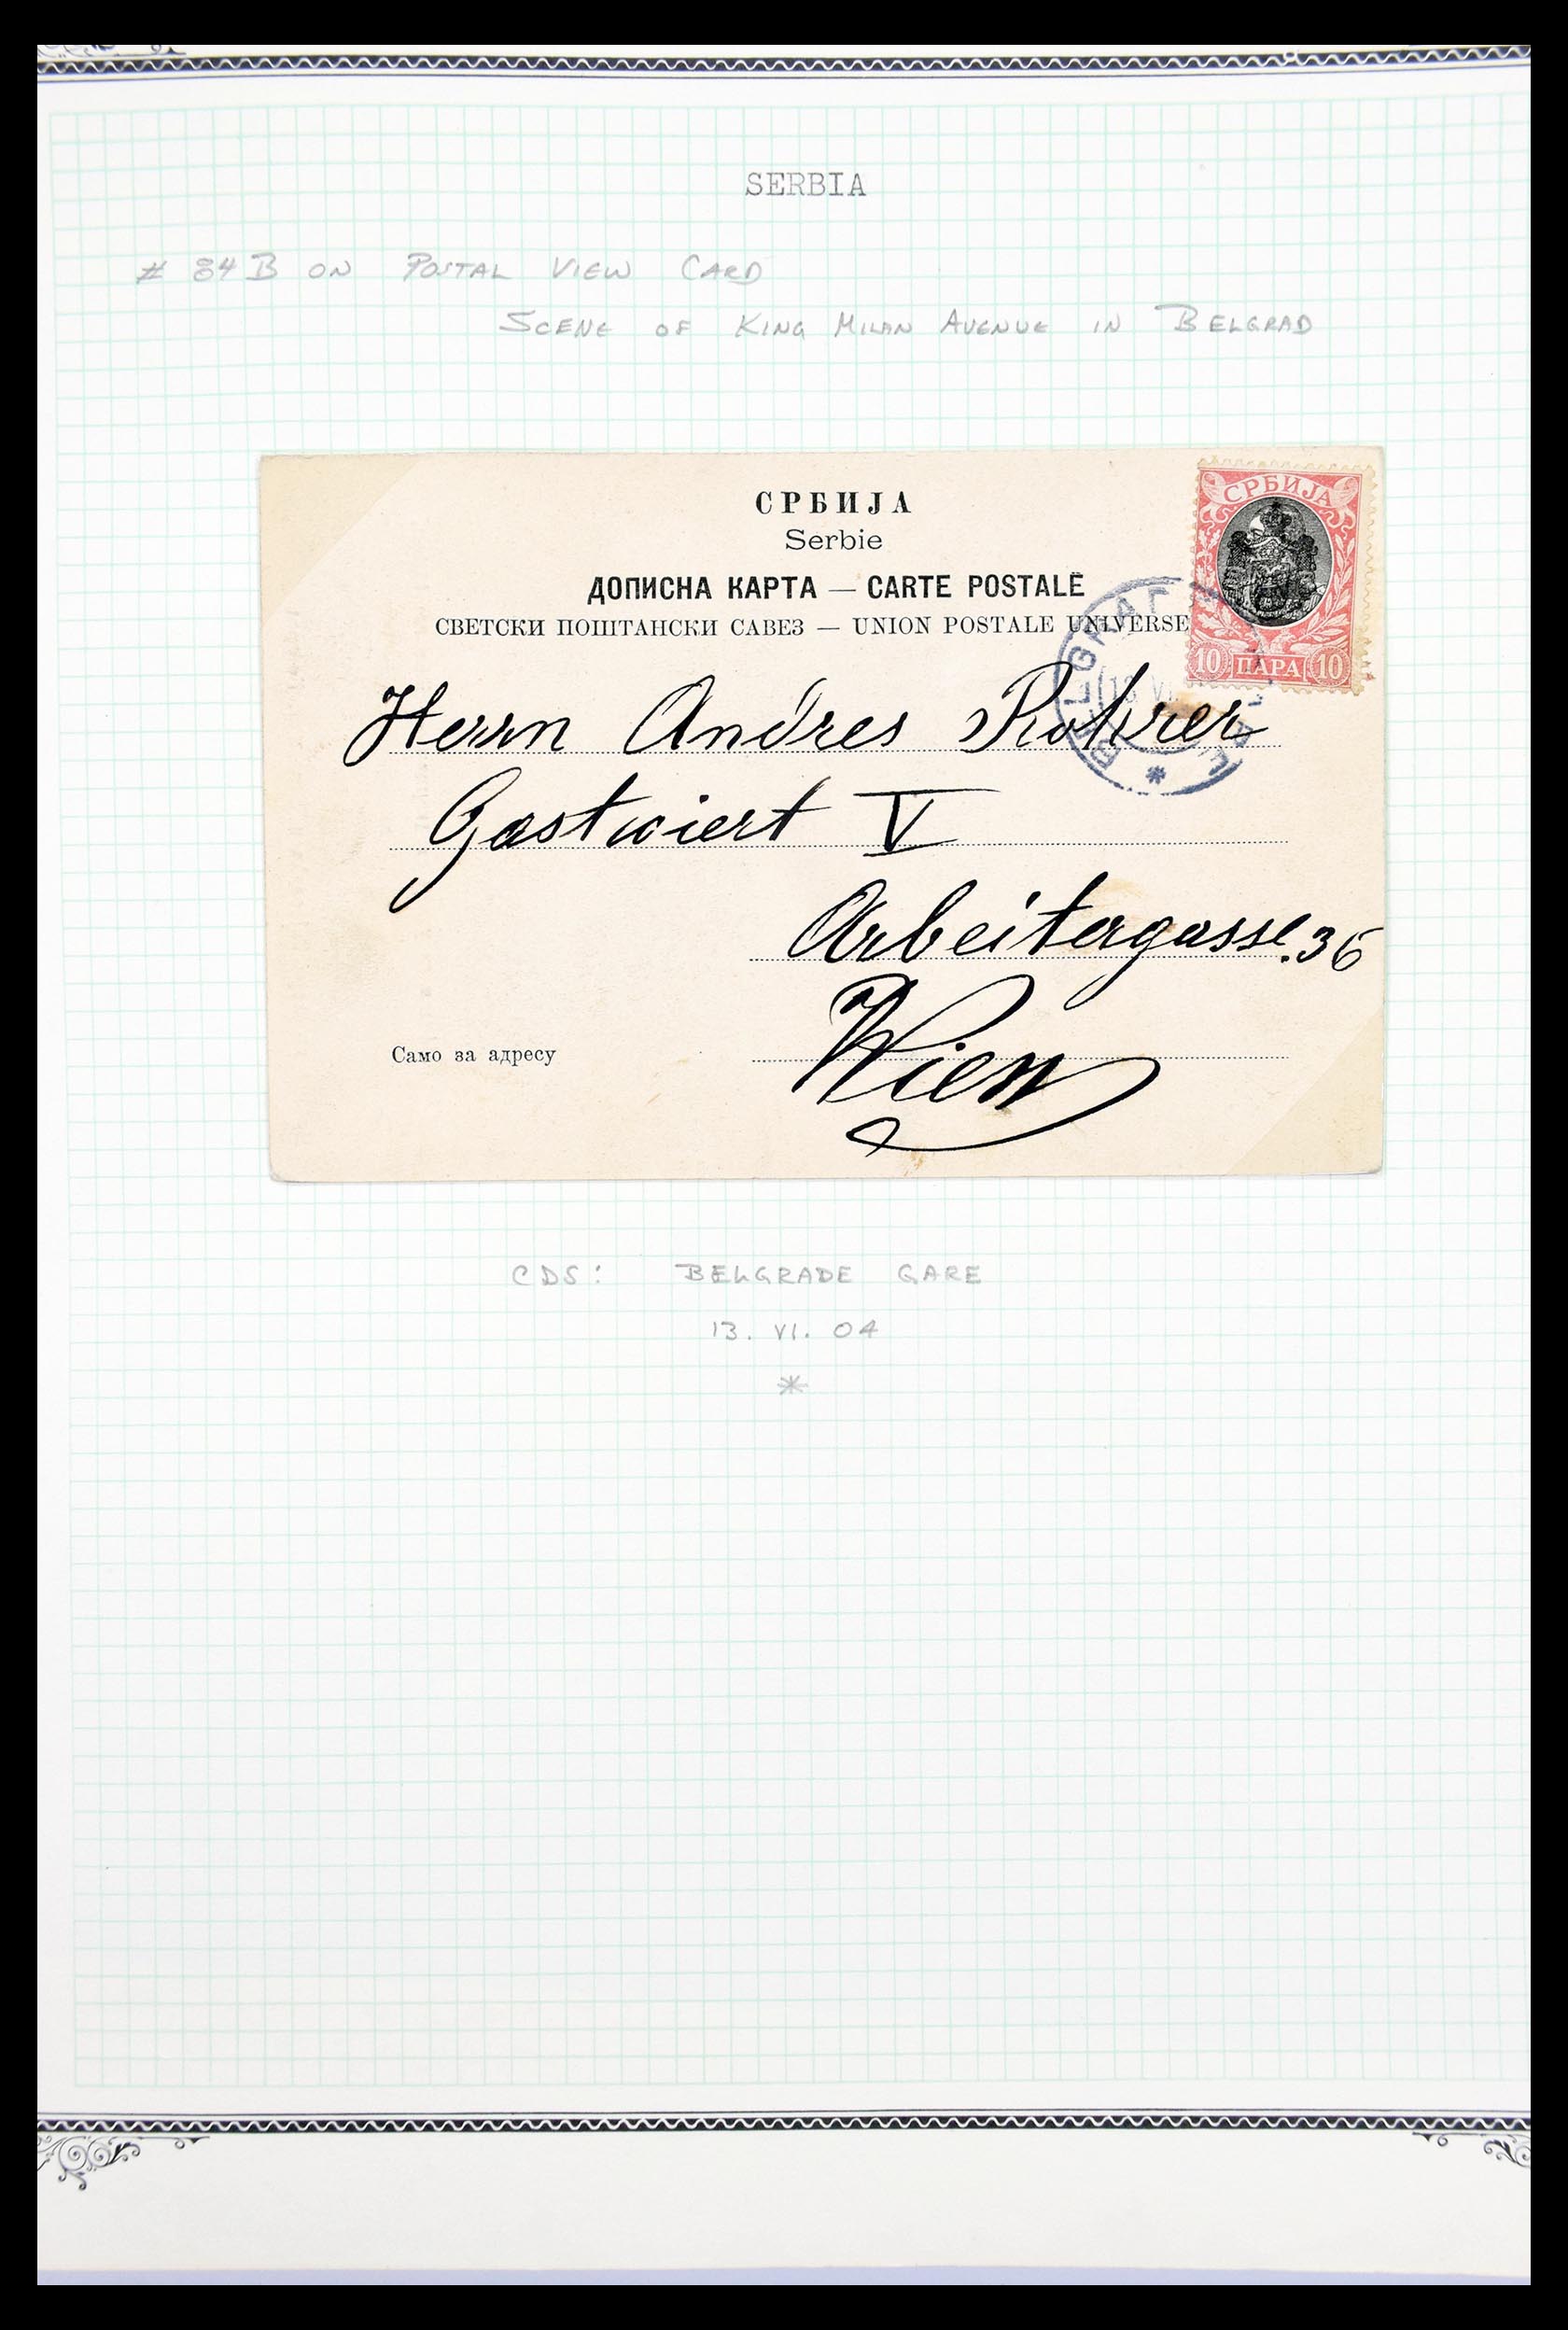 SERBIA
# 84B ON POSTAL VIEW CARD
SCENE OF KING MILAN AVENUE IN BELGRAD
СРБИЈА
Serbie
ДОПИСНА КАРТА — CARTE POSTALE
СВЕТСКИ ПОШТАНСКИ САВЕЗ — UNION POSTALE UNIVERSE
СРБИЈА
10 ПАРА 10
13 VI
Herrn Andres Rohrer
Gastwiert V
Arbeitergasse. 36
Wien
Само за адресу
CDS: BELGRADE GARE
13. VI. 04
*